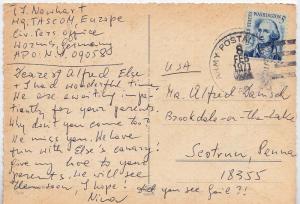 LT. Newhart
Hq. TASCOM, Europe
Civ. Pers Office
Worms, Germany
APO: N.Y. 09058
Dearest Alfred Else
I had wonderful time.
We are awaiting impa-
tiently for your parents.
Why don't you come too?
We miss you. We have
fun with Else's canary!
Give my love to your
parents. We will see
them soon, I hope! And you see Gaie?!
Nina
ARMY POSTAL
FEB
WASHINGTON
5c
USA
Mr. Alfred
Brookdale-on-the-Lake
Scotrun, Penna
18355